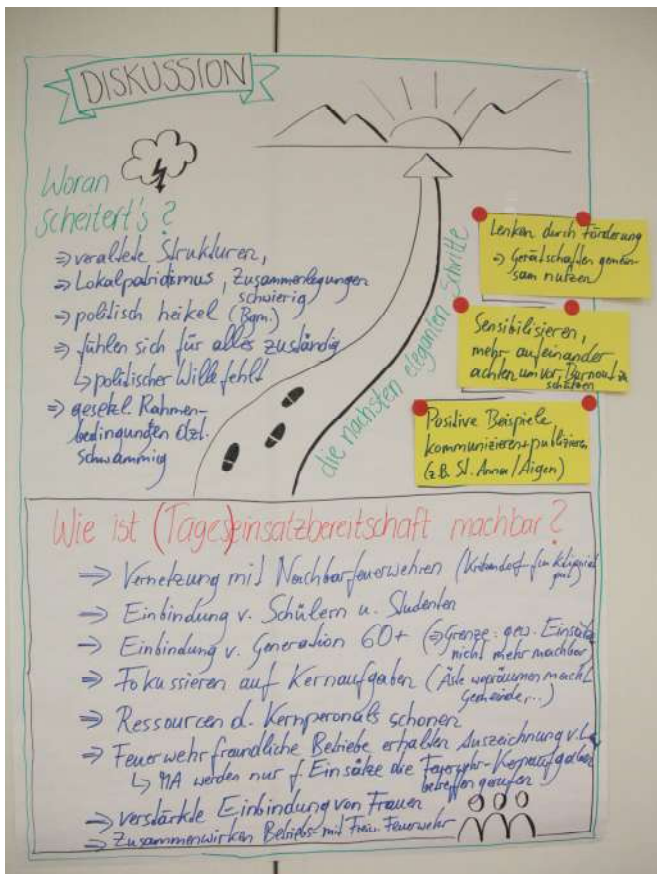 DISKUSSION
Woran
scheitert's?
⇒ veraltete Strukturen,
⇒ Lokalpatriotismus, Zusammenlegungen
schwierig
⇒ politisch heikel (Bgm.)
⇒ fühlen sich für alles zuständig
↳ politischer Wille fehlt
⇒ gesetzl. Rahmen-
bedingungen dzt.
schwammig
die nächsten eleganten Schritte
Lenken durch Förderung
⇒ Gerätschaften gemein-
sam nutzen
Sensibilisieren,
mehr aufeinander
achten um vor Burnout zu
schützen
Positive Beispiele
kommunizieren + publizieren
(z.B. St. Anna/Aigen)
Wie ist (Tages)einsatzbereitschaft machbar?
⇒ Vernetzung mit Nachbarfeuerwehren
⇒ Einbindung v. Schülern u. Studenten
⇒ Einbindung v. Generation 60+ (⇒ Grenze: gew. Einsätze
nicht mehr machbar
⇒ Fokussieren auf Kernaufgaben (Äste wegräumen macht
Gemeinde,...)
⇒ Ressourcen d. Kernperonals schonen
⇒ Feuerwehrfreundliche Betriebe erhalten Auszeichnung v.
↳ MA werden nur f. Einsätze die Feuerwehr-Kernaufgaben
betreffen gerufen)
⇒ verstärkte Einbindung von Frauen
⇒ Zusammenwirken Betriebs- mit Freiw. Feuerwehr